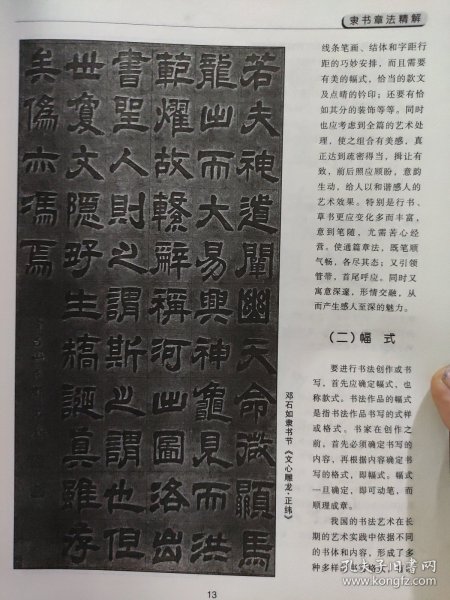 隶书章法精解
若夫神道闡幽天命微顯馬
龍出而大易興神龜見而洪
範燿故繫辭稱河出圖洛出
書聖人則之謂斯之謂也但
世夐文隱好生矯誕真雖存
矣僞亦馮焉
邓石如隶书节《文心雕龙·正纬》
线条笔画、结体和字距行
距的巧妙安排，而且需要
有美的幅式，恰当的款文
及点晴的钤印；还要有恰
如其分的装饰等等。同时
也应考虑到全篇的艺术处
理，使之组合有美感，真
正达到疏密得当，揖让有
致，前后照应顾盼，意韵
生动，给人以和谐感人的
艺术效果。特别是行书、
草书更应变化多而丰富，
意到笔随，尤需苦心经
营。使通篇章法，既笔顺
气畅，各尽其态；又引领
管带，首尾呼应。同时又
寓意深邃，形情交融，从
而产生感人至深的魅力。
（二）幅 式
要进行书法创作或书
写，首先应确定幅式，也
称款式。书法作品的幅式
是指书法作品书写的式样
或格式。书家在创作之
前，首先必须确定书写的
内容，再根据内容确定书
写的格式，即幅式。幅式
一旦确定，即可动笔，而
顺理成章。
我国的书法艺术在长
期的艺术实践中依据不同
的书体和内容，形成了多
种多样
13
孔夫子旧书网
www.kongfz.com